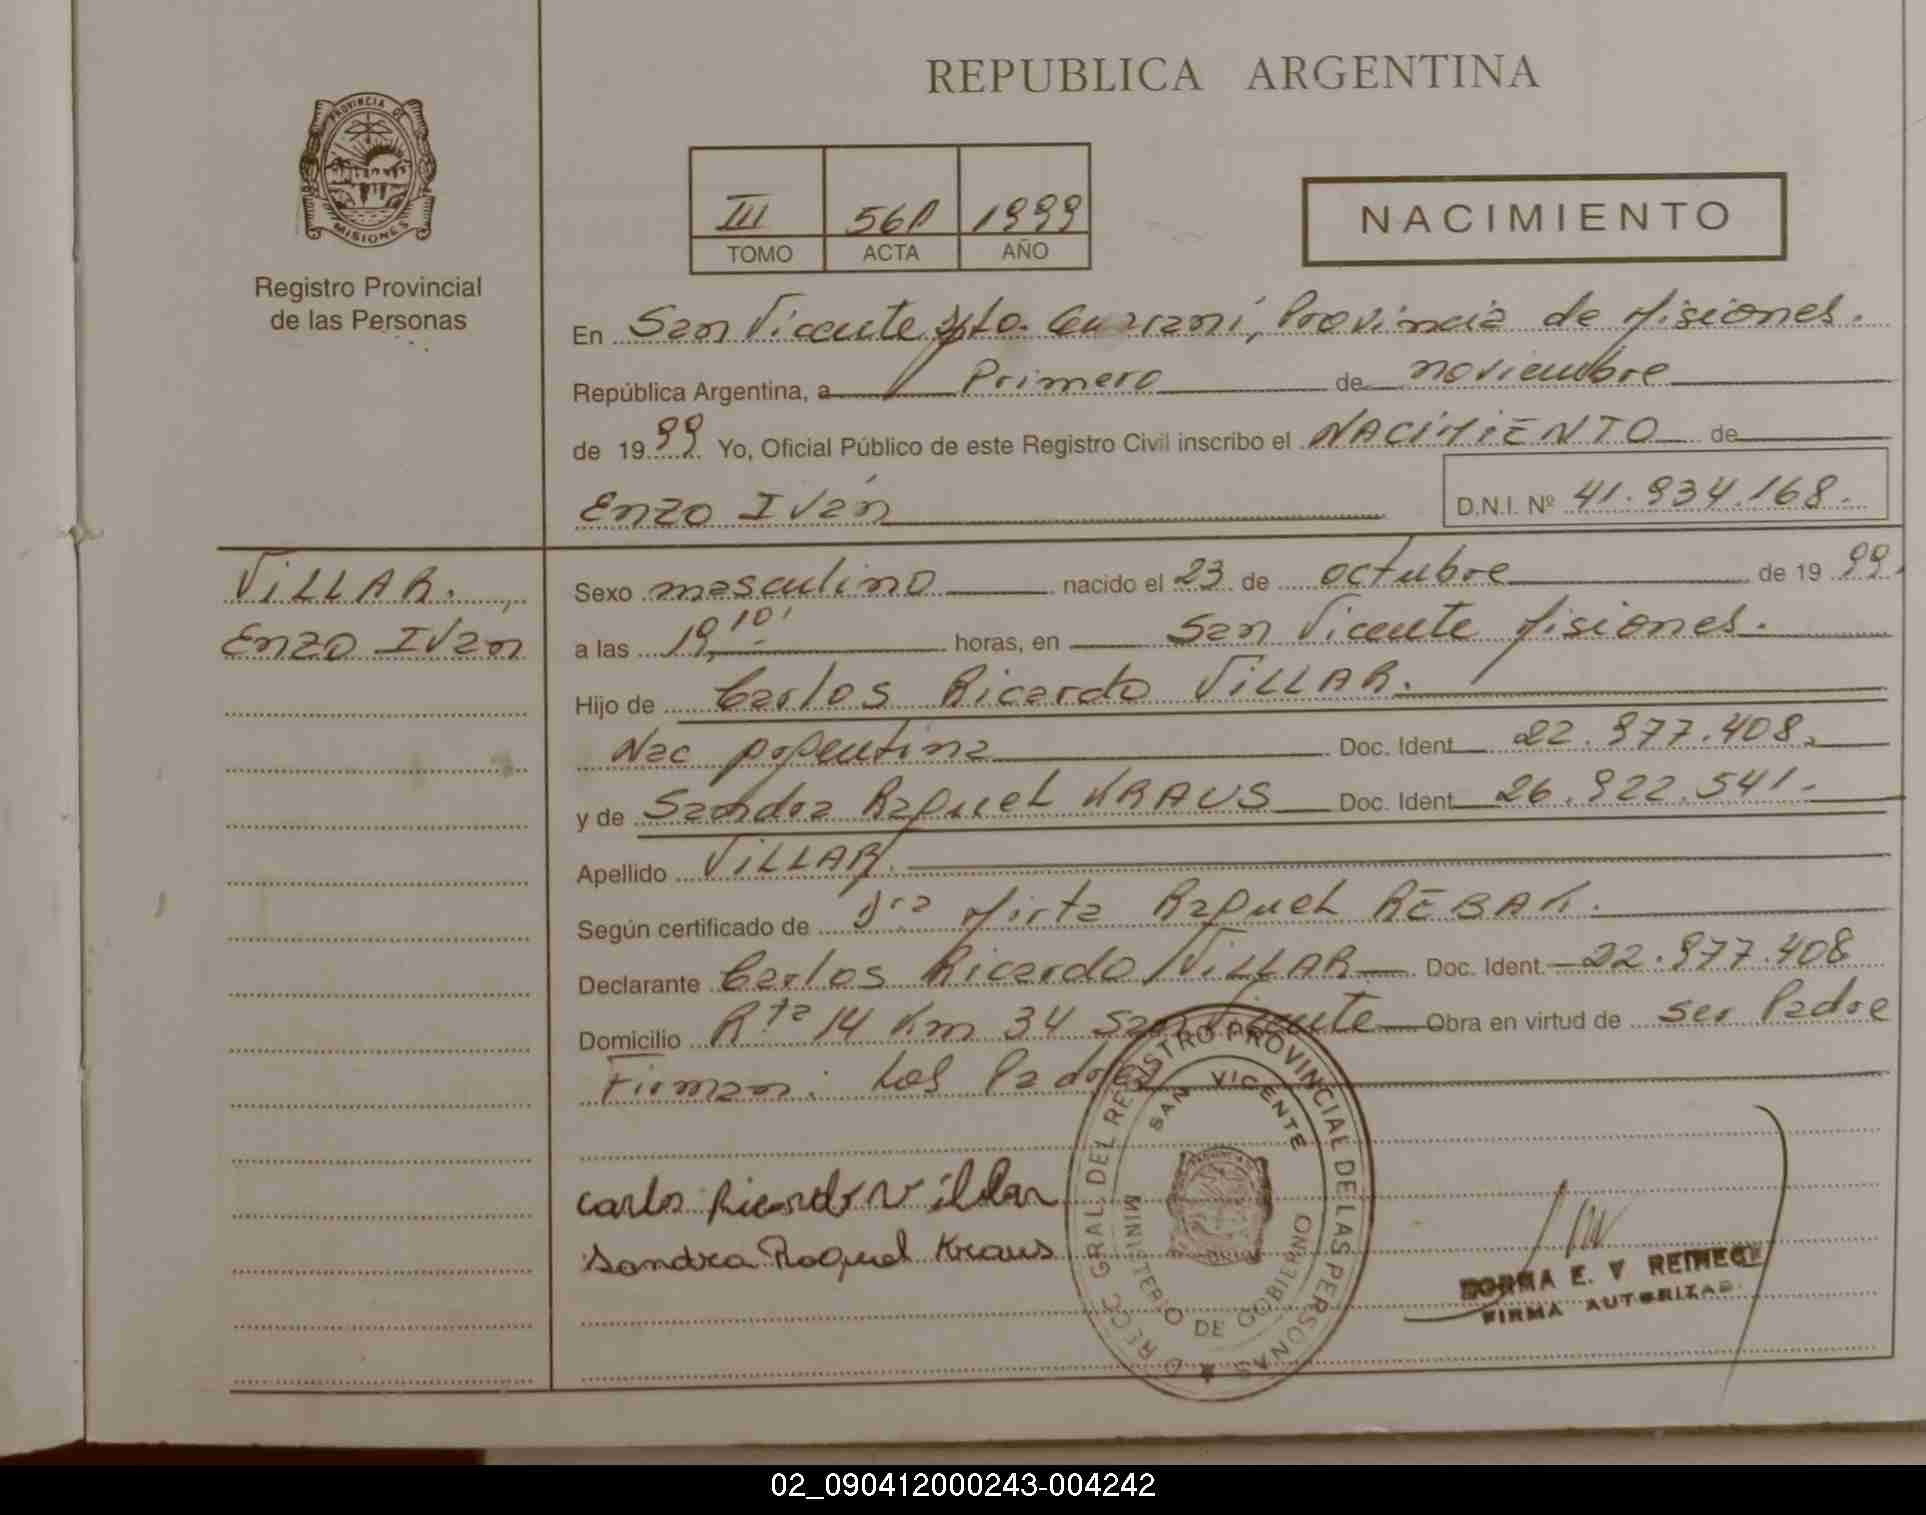 REPUBLICA ARGENTINA
PROVINCIA DE
MISIONES
Registro Provincial
de las Personas
III 561 1999
TOMO ACTA AÑO
NACIMIENTO
En San Vicente Dpto. Guaraní, Provincia de Misiones.
República Argentina, a Primero de noviembre
de 1999 Yo, Oficial Público de este Registro Civil inscribo el NACIMIENTO de
Enzo Iván D.N.I. Nº 41.934.168.
VILLAR.
Enzo Ivan
Sexo masculino nacido el 23 de octubre de 1999.
a las 19,10' horas, en San Vicente Misiones.
Hijo de Carlos Ricardo VILLAR.
Nac Argentina Doc. Ident 22.977.408.
y de Sandra Raquel KRAUS Doc. Ident 26.922.541.
Apellido VILLAR.
Según certificado de Dra Mirta Raquel REBAK.
Declarante Carlos Ricardo VILLAR Doc. Ident. 22.977.408
Domicilio Rta 14 Km 34 San Vicente Obra en virtud de ser Padre
Firman: Los Padres
Carlos Ricardo Villar
Sandra Raquel Kraus
DIRECC GRAL. DEL REGISTRO PROVINCIAL DE LAS PERSONAS
SAN VICENTE
MINISTERIO DE GOBIERNO
E. V REINECK
FIRMA AUTORIZAD.
02_090412000243-004242